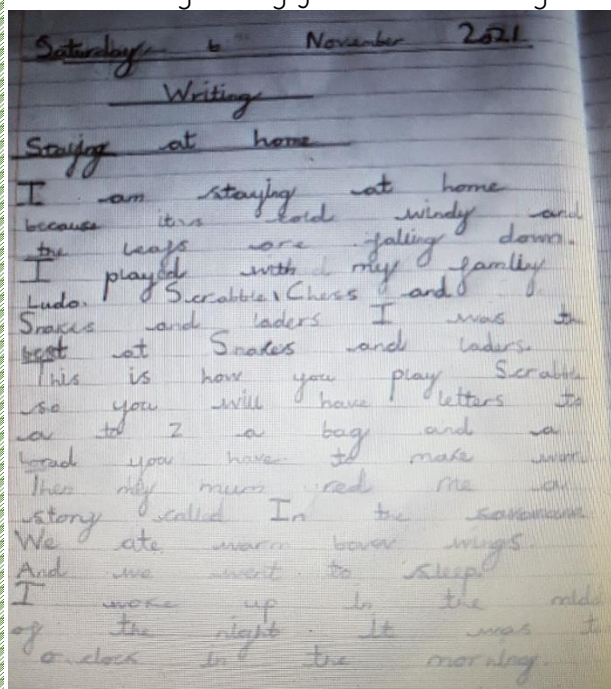 Saturday 6 November 2021
Writing
Staying at home
I am staying at home
because it is cold windy and
the leafs are faling down.
I played with my family
Ludo. Scrabble, Chess and
Snakes and laders I was
best at Snakes and laders.
This is how you play
so you will have letters to
a to z a bag and a
you have to make
Then my mum red me a
story called In the
We ate warm wings.
And we went to sleep
I woke up in the
of the night. It was
o clock in the morning.